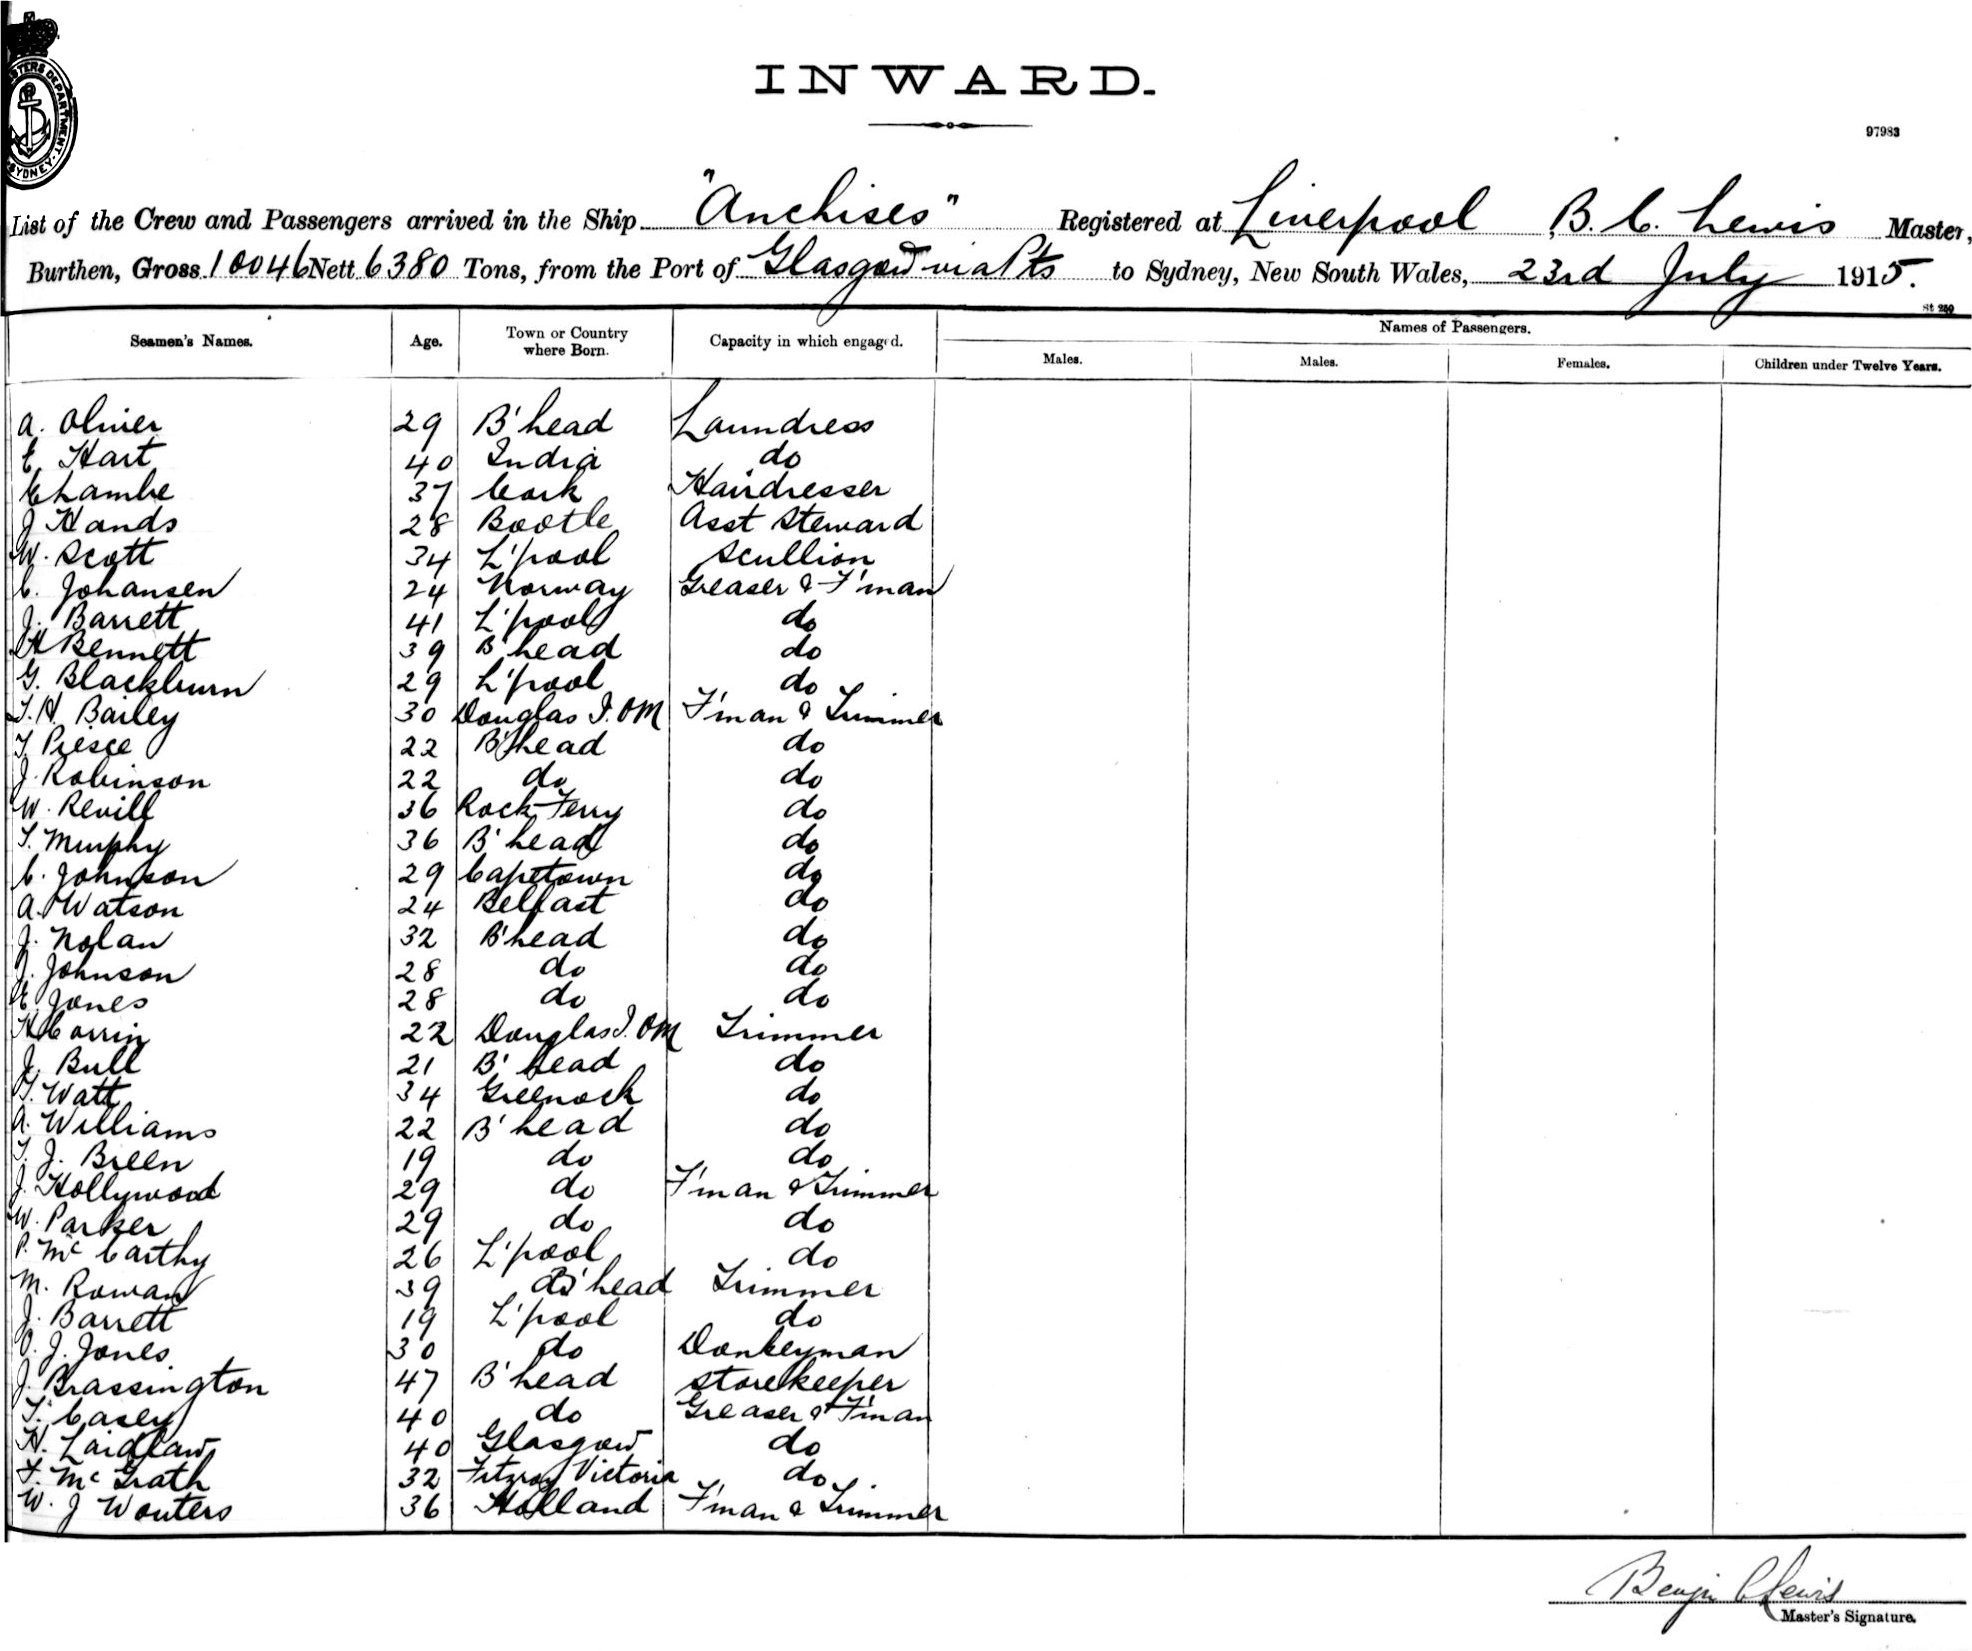 INWARD.
97983
MASTERS DEPARTMENT. SYDNEY.
List of the Crew and Passengers arrived in the Ship "Anchises" Registered at Liverpool B. C. Lewis Master,
Burthen, Gross 10046 Nett 6380 Tons, from the Port of Glasgow via Pts to Sydney, New South Wales, 23rd July 1915.
St 250
Seamen's Names. Age. Town or Country where Born. Capacity in which engaged. Names of Passengers.
Males. Males. Females. Children under Twelve Years.
A. Oliver 29 B'head Laundress
E. Hart 40 India do
C Lambe 37 Cork Hairdresser
J Hands 28 Bootle Asst Steward
W. Scott 34 L'pool Scullion
C. Johansen 24 Norway Greaser & F'man
J. Barrett 41 L'pool do
H Bennett 39 B'head do
G. Blackburn 29 L'pool do
T. H. Bailey 30 Douglas I. OM F'man & Trimmer
T. Pierce 22 B'head do
J. Robinson 22 do do
W. Revill 36 Rock Ferry do
T. Murphy 36 B'head do
C. Johnson 29 Capetown do
A. Watson 24 Belfast do
J. Nolan 32 B'head do
J. Johnson 28 do do
E. Jones 28 do do
H Corrin 22 Douglas I. OM Trimmer
J. Bull 21 B'head do
T. Watt 34 Greenock do
A. Williams 22 B'head do
T. J. Breen 19 do do
J. Hollywood 29 do F'man & Trimmer
W. Parker 29 do do
P. McCarthy 26 L'pool do
M. Rowan 39 B'head Trimmer
J. Barrett 19 L'pool do
O. J. Jones 30 do Donkeyman
J. Brassington 47 B'head Storekeeper
T. Casey 40 do Greaser & F'man
H. Laidlaw 40 Glasgow do
F. McGrath 32 Fitzroy Victoria do
W. J Wouters 36 Holland F'man & Trimmer
Benjn C Lewis
Master's Signature.